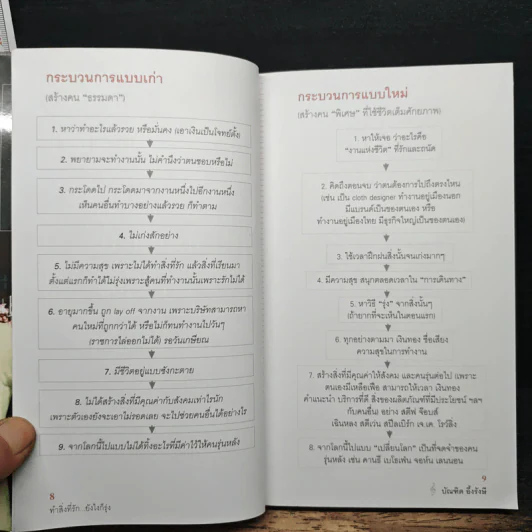 กระบวนการแบบเก่า
(สร้างคน “ธรรมดา”)
1. หาว่าทำอะไรแล้วรวย หรือมั่นคง (เอาเงินเป็นโจทย์ตั้ง)
2. พยายามจะทำงานนั้น ไม่คำนึงว่าตนชอบหรือไม่
3. กระโดดไป กระโดดมาจากงานหนึ่งไปอีกงานหนึ่ง
เห็นคนอื่นทำบางอย่างแล้วรวย ก็ทำตาม
4. ไม่เก่งสักอย่าง
5. ไม่มีความสุข เพราะไม่ได้ทำสิ่งที่รัก แล้วสิ่งที่เรียนมา
ตั้งแต่แรกก็ทำได้ไม่รุ่งเพราะสู้คนที่ทำงานนั้นเพราะรักไม่ได้
6. อายุมากขึ้น ถูก lay off จากงาน เพราะบริษัทสามารถหา
คนใหม่ที่ถูกกว่าได้ หรือไม่ก็ทนทำงานไปวันๆ
(ราชการไล่ออกไม่ได้) รอวันเกษียณ
7. มีชีวิตอยู่แบบซังกะตาย
8. ไม่ได้สร้างสิ่งที่มีคุณค่ากับสังคมเท่าไรนัก
เพราะตัวเองยังจะเอาไม่รอดเลย จะไปช่วยคนอื่นได้อย่างไร
9. จากโลกนี้ไปแบบไม่ได้ทิ้งอะไรที่มีค่าไว้ให้คนรุ่นหลัง
8
ทำสิ่งที่รัก...ยังไงก็รุ่ง
กระบวนการแบบใหม่
(สร้างคน “พิเศษ” ที่ใช้ชีวิตเต็มศักยภาพ)
1. หาให้เจอ ว่าอะไรคือ
“งานแห่งชีวิต” ที่รักและถนัด
2. คิดถึงตอนจบ ว่าตนต้องการไปถึงตรงไหน
(เช่น เป็น cloth designer ทำงานอยู่เมืองนอก
มีแบรนด์เป็นของตนเอง หรือ
ทำงานอยู่เมืองไทย มีธุรกิจใหญ่เป็นของตนเอง)
3. ใช้เวลาฝึกฝนสิ่งนั้นจนเก่งมากๆ
4. มีความสุข สนุกตลอดเวลาใน “การเดินทาง”
5. หาวิธี “รุ่ง” จากสิ่งนั้นๆ
(ถ้ายากที่จะเห็นในตอนแรก)
6. ทุกอย่างตามมา เงินทอง ชื่อเสียง
ความสุขในการทำงาน
7. สร้างสิ่งที่มีคุณค่าให้สังคม และคนรุ่นต่อไป (เพราะ
ตนเองมีเหลือเฟือ สามารถให้เวลา เงินทอง
คำแนะนำ บริการที่ดี สิ่งของผลิตภัณฑ์ที่มีประโยชน์ ฯลฯ
กับคนอื่น) อย่าง สตีฟ จ๊อบส์
เฉินหลง สตีเว่น สปีลเบิร์ก เจ.เค. โรว์ลิ่ง
8. จากโลกนี้ไปแบบ “เปลี่ยนโลก” เป็นที่จดจำของคน
รุ่นหลัง เช่น คานธี เบโธเฟ่น จอห์น เลนนอน
9
บัณฑิต อึ้งรังษี